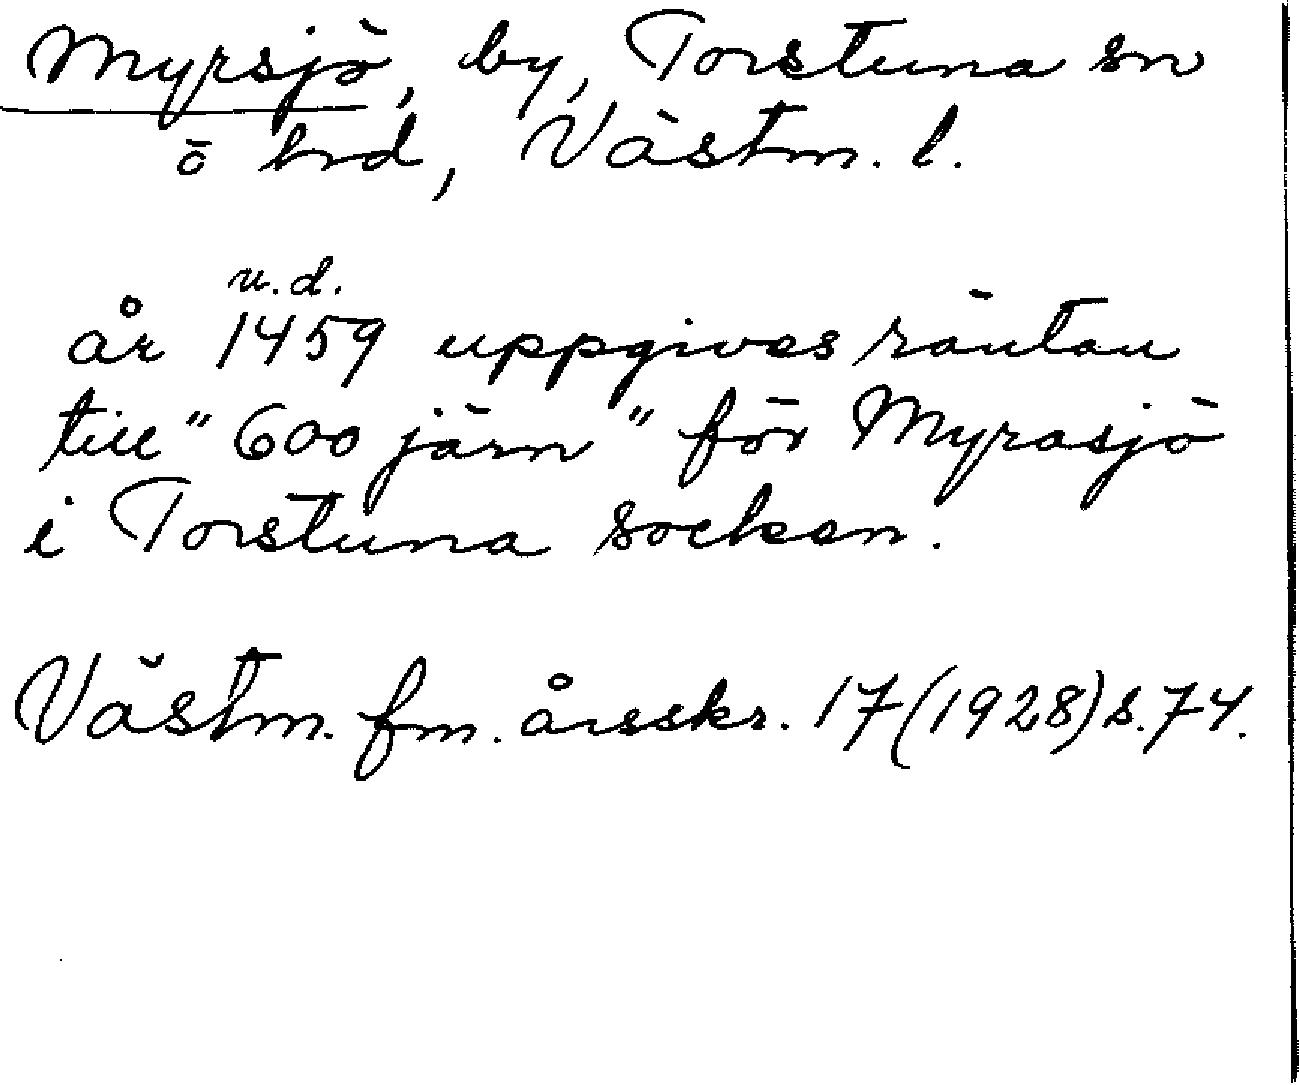 Myrsjö, by, Torstuna sn
ö hrd, Västm. l.
u.d.
år 1459 uppgives räntan
till "600 järn" för Myrasjö
i Torstuna socken.
Västm. fm. årsskr. 17(1928)s.74.